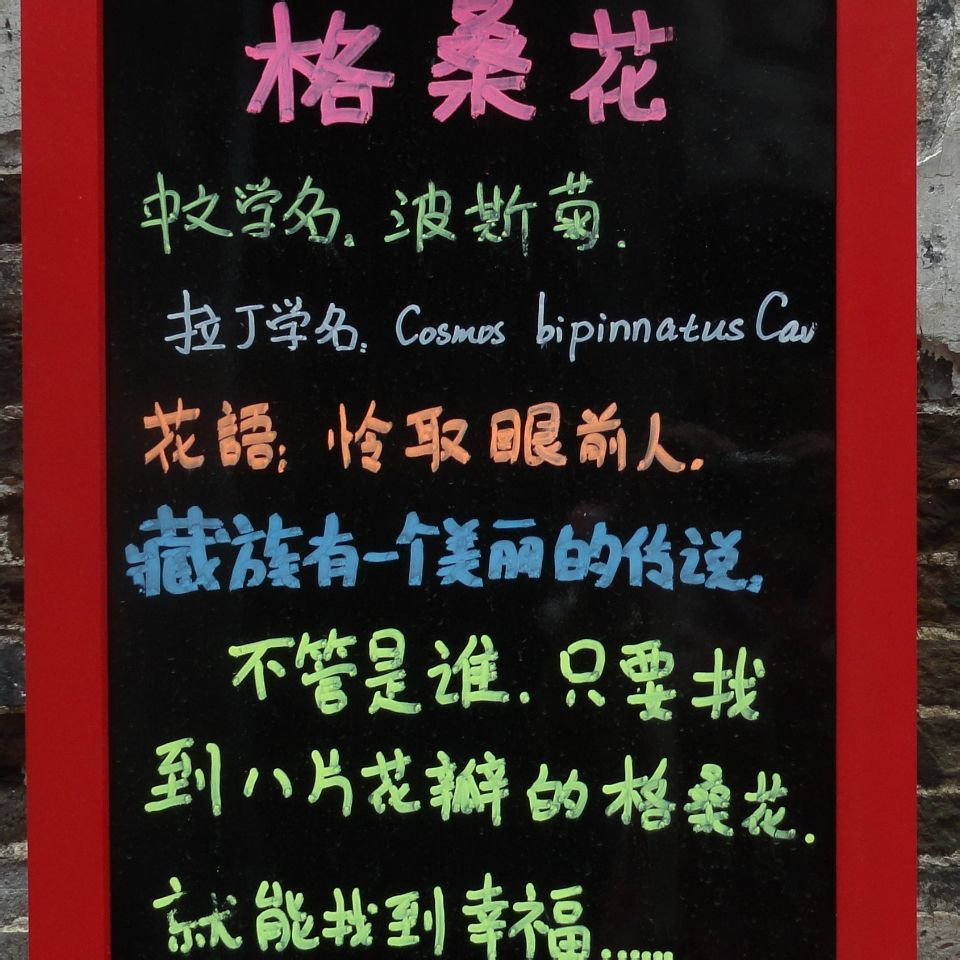 格桑花
中文学名：波斯菊.
拉丁学名：Cosmos bipinnatus Cav
花語：怜取眼前人.
藏族有一个美丽的传说。
不管是谁.只要找
到八片花瓣的格桑花.
就能找到幸福......